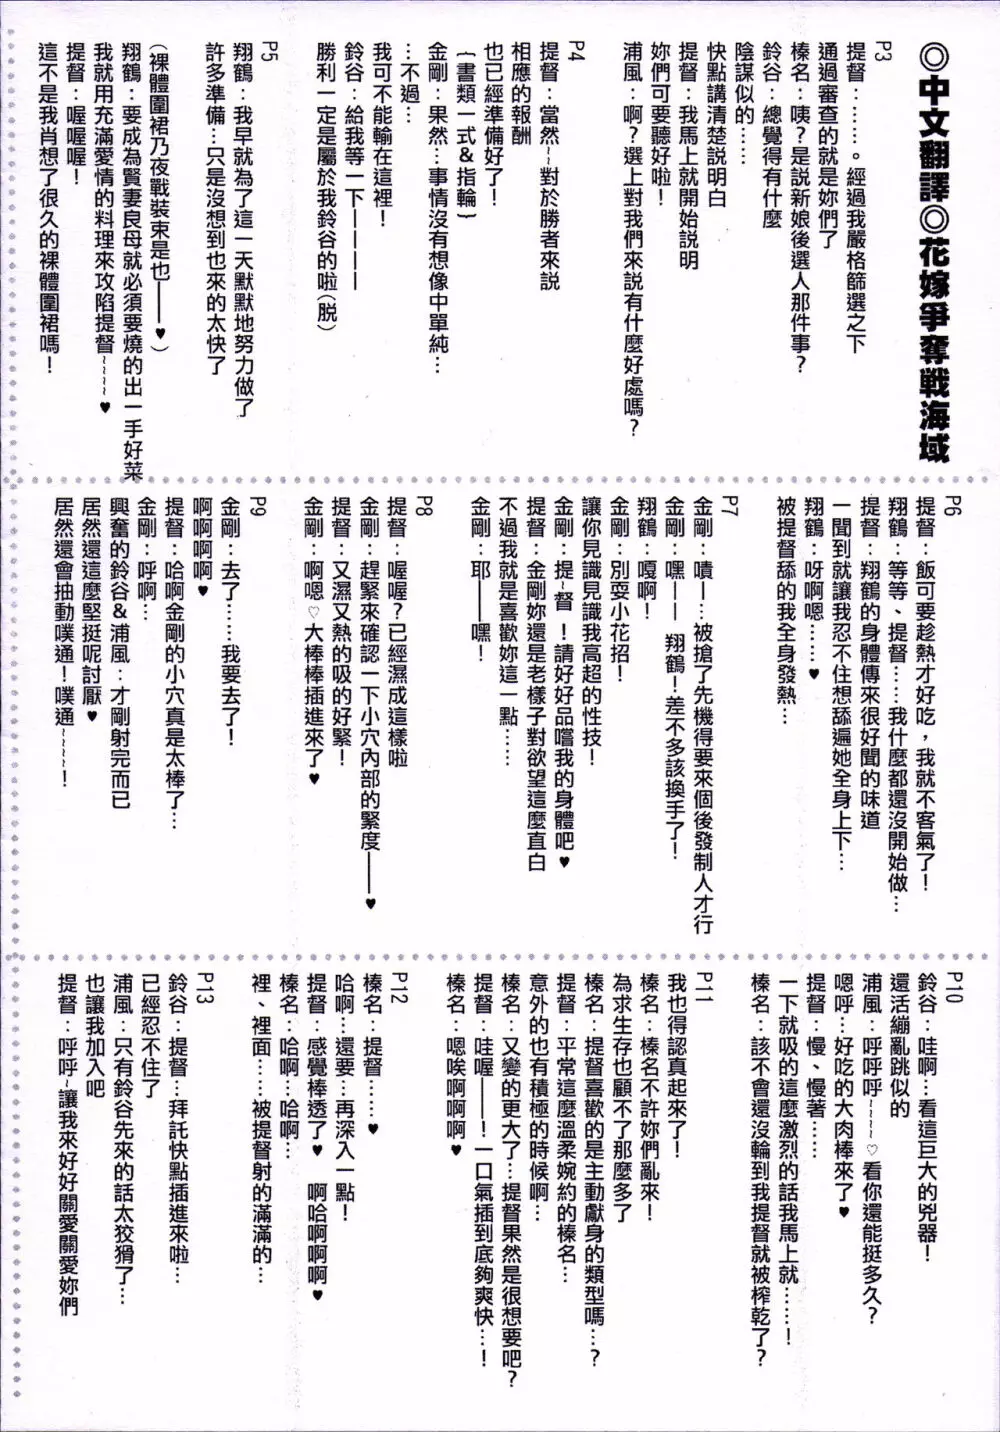 ◎中文翻譯◎花嫁爭奪戰海域
P3
提督：………。經過我嚴格篩選之下
通過審查的就是妳們了
榛名：咦?是説新娘後選人那件事?
鈴谷：總覺得有什麼
陰謀似的……
快點講清楚説明白
提督：我馬上就開始説明
妳們可要聽好啦!
浦風：啊?選上對我們來説有什麼好處嗎?
P4
提督：當然~對於勝者來説
相應的報酬
也已經準備好了!
(書類一式&指輪)
金剛：果然…事情沒有想像中單純…
…不過…
我可不能輸在這裡!
鈴谷：給我等一下————
勝利一定是屬於我鈴谷的啦(脱)
P5
翔鶴：我早就為了這一天默默地努力做了
許多準備…只是沒想到也來的太快了
(裸體圍裙乃夜戰裝束是也——♥)
翔鶴：要成為賢妻良母就必須要燒的出一手好菜
我就用充滿愛情的料理來攻陷提督~~~~♥
提督：喔喔喔!
這不是我肖想了很久的裸體圍裙嗎!
P6
提督：飯可要趁熱才好吃，我就不客氣了!
翔鶴：等等、提督……我什麼都還沒開始做…
提督：翔鶴的身體傳來很好聞的味道
一聞到就讓我忍不住想舔遍她全身上下…
翔鶴：呀啊嗯……♥
被提督舔的我全身發熱…
P7
金剛：嘖—…被搶了先機得要來個後發制人才行
金剛：嘿—— 翔鶴!差不多該換手了!
翔鶴：嘎啊!
金剛：別耍小花招!
讓你見識見識我高超的性技!
金剛：提~督 !請好好品嚐我的身體吧♥
提督：金剛妳還是老樣子對欲望這麼直白
不過我就是喜歡妳這一點……
金剛：耶——嘿!
P8
提督：喔喔?已經濕成這樣啦
金剛：趕緊來確認一下小穴內部的緊度——♥
提督：又濕又熱的吸的好緊!
金剛：啊嗯♡大棒棒插進來了♥
P9
金剛：去了……我要去了!
啊啊啊啊♥
提督：哈啊金剛的小穴真是太棒了…
金剛：呼啊…
興奮的鈴谷&浦風：才剛射完而已
居然還這麼堅挺呢討厭♥
居然還會抽動噗通!噗通~~~~!
P10
鈴谷：哇啊…看這巨大的兇器!
還活繃亂跳似的
浦風：呼呼呼~~~~♡看你還能挺多久?
嗯呼…好吃的大肉棒來了♥
提督：慢、慢著……
一下就吸的這麼激烈的話我馬上就……!
榛名：該不會還沒輪到我提督就被榨乾了?
P11
我也得認真起來了!
榛名：榛名不許妳們亂來!
為求生存也顧不了那麼多了
榛名：提督喜歡的是主動獻身的類型嗎…?
提督：平常這麼溫柔婉約的榛名…
意外的也有積極的時候啊…
榛名：又變的更大了…提督果然是很想要吧?
提督：哇喔——!一口氣插到底夠爽快…!
榛名：嗯唉啊啊啊♥
P12
榛名：提督……♥
哈啊…還要…再深入一點!
提督：感覺棒透了♥ 啊哈啊啊啊♥
榛名：哈啊…哈啊…
裡、裡面……被提督射的滿滿的…
P13
鈴谷：提督…拜託快點插進來啦…
已經忍不住了
浦風：只有鈴谷先來的話太狡猾了…
也讓我加入吧
提督：呼呼~讓我來好好關愛關愛妳們